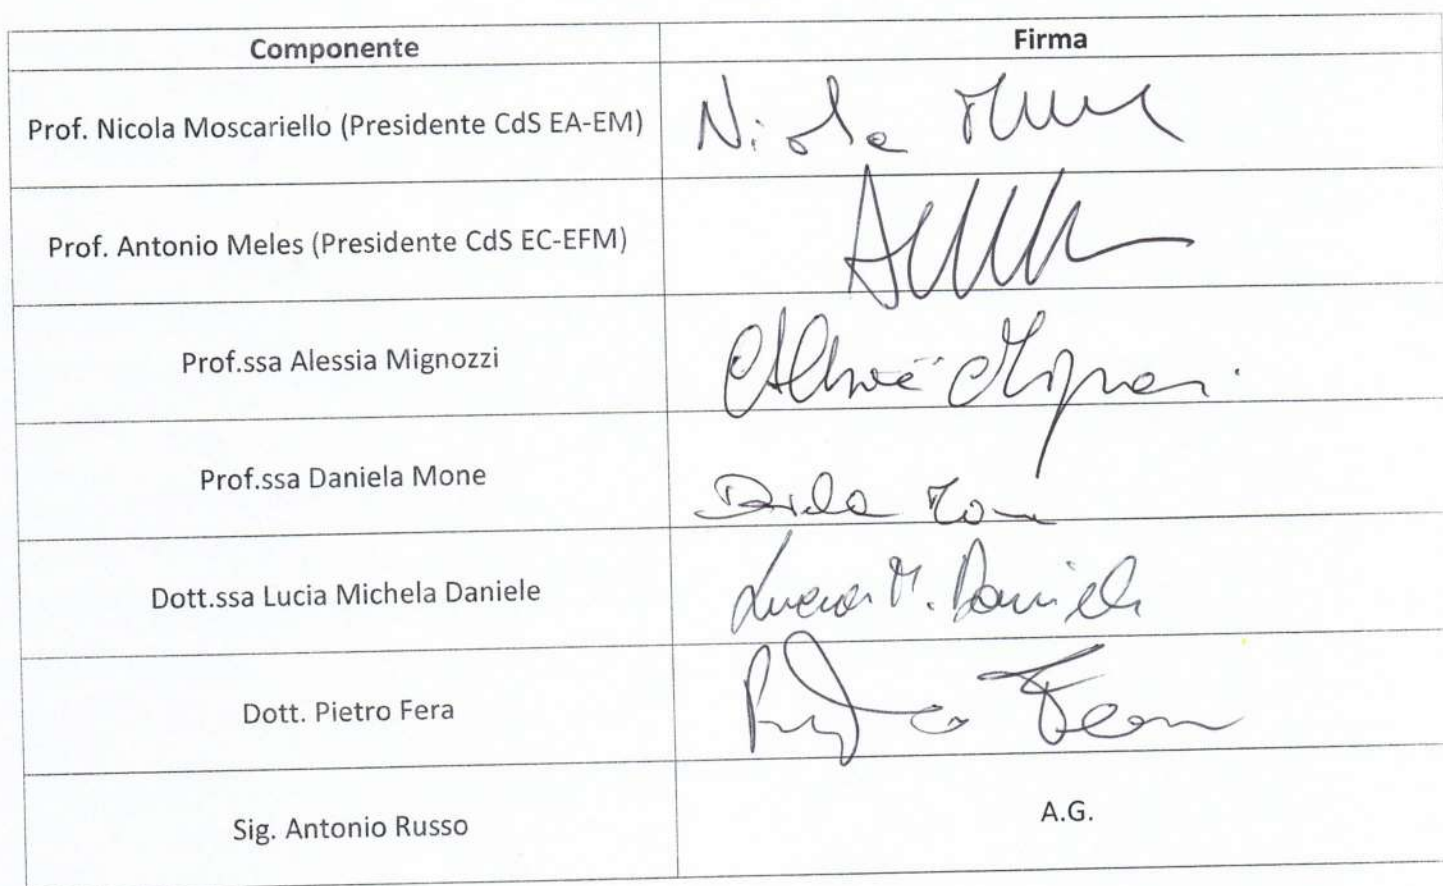 Componente Firma
Prof. Nicola Moscariello (Presidente CdS EA-EM) Nicola
Prof. Antonio Meles (Presidente CdS EC-EFM)
Prof.ssa Alessia Mignozzi
Prof.ssa Daniela Mone
Dott.ssa Lucia Michela Daniele Lucia M. Daniele
Dott. Pietro Fera
Sig. Antonio Russo A.G.